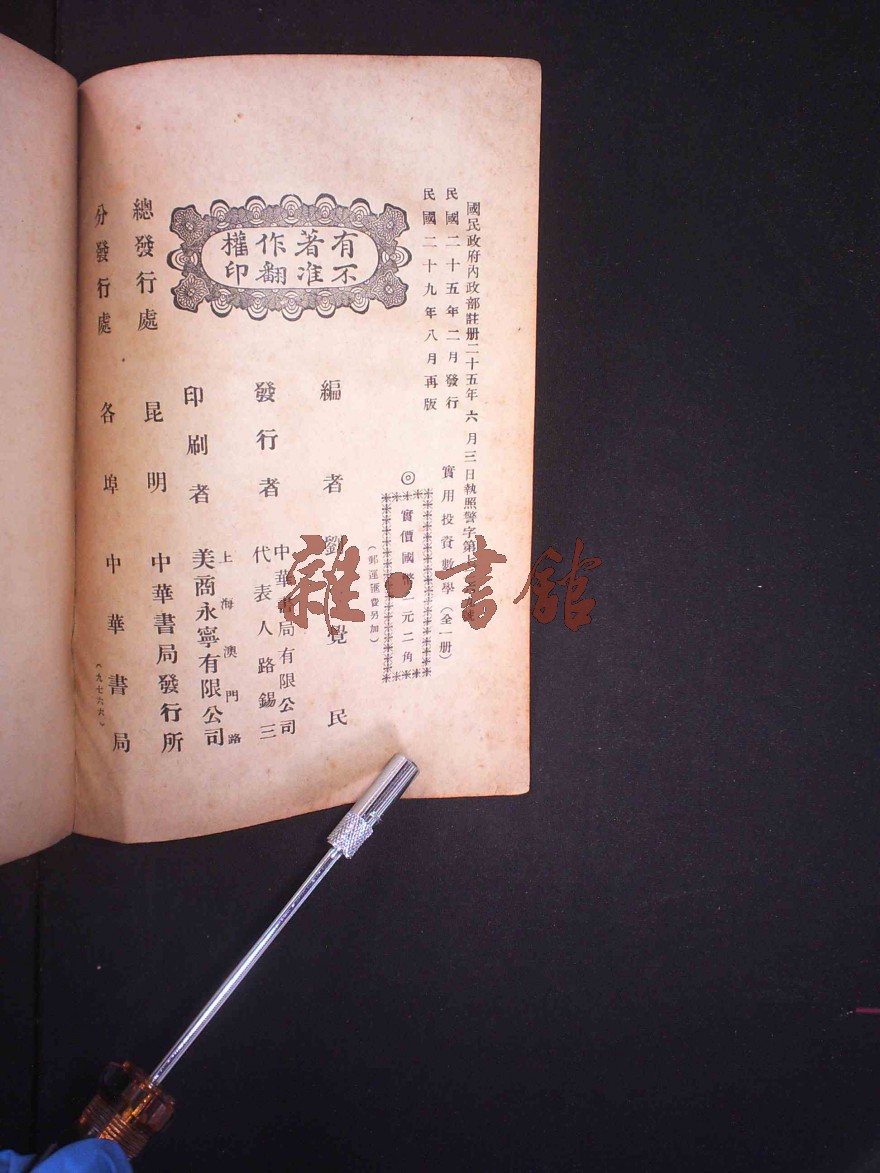 國民政府內政部註册二十五年六月三日執照警字第
民國二十五年二月發行
民國二十九年八月再版
實用投資數學（全一册）
◎實價國幣一元二角
（郵運匯費另加）
有著作權
不准翻印
編者 劉覺民
發行者 中華書局有限公司
代表人路錫三
印刷者 上海澳門路
美商永寧有限公司
總發行處 昆明 中華書局發行所
分發行處 各埠 中華書局
雜·書館